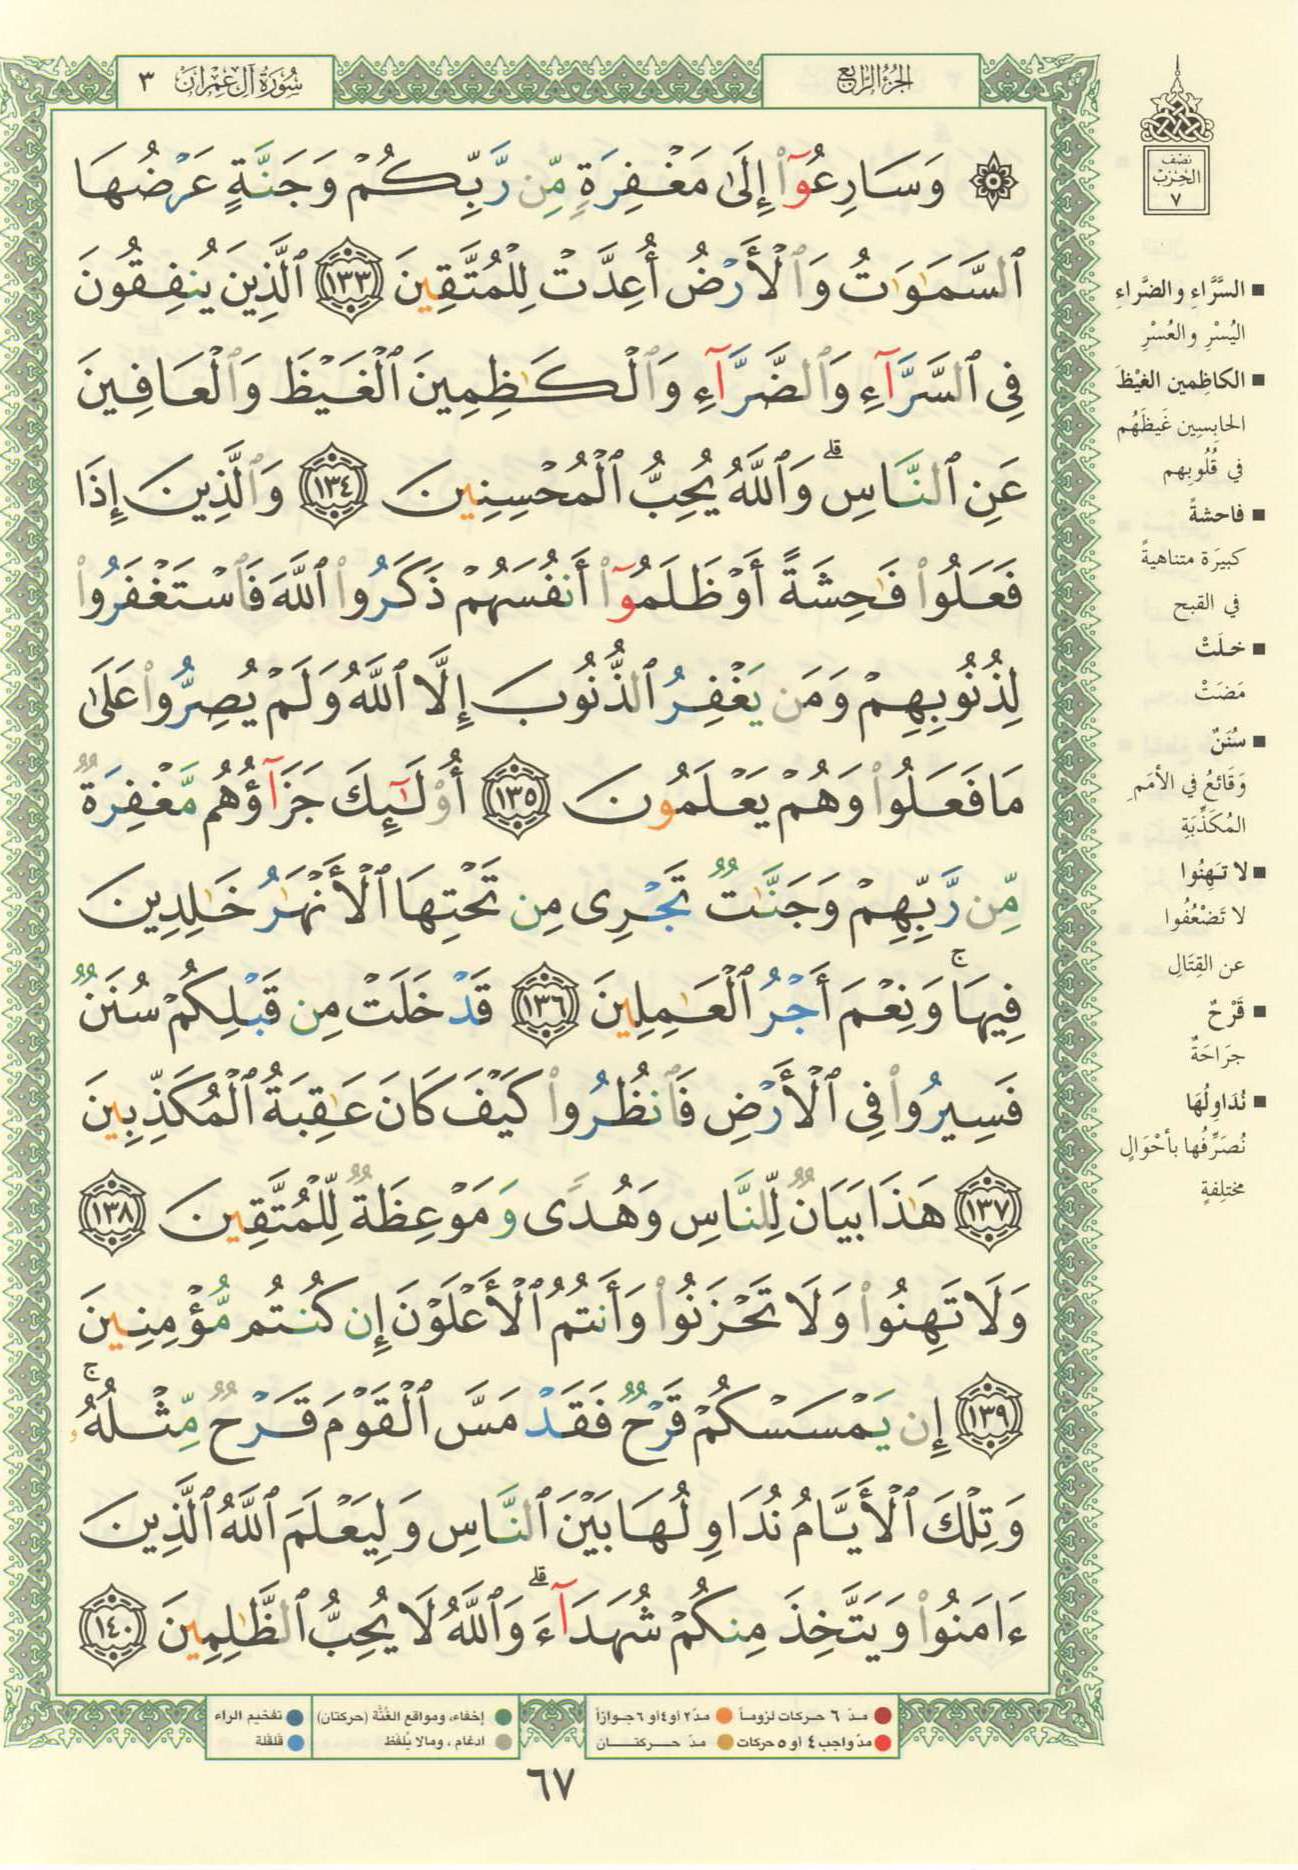 سُورَةُ آلِ عِمْرَانَ ٣
الجُزْءُ الرَّابِعُ
۞ وَسَارِعُوٓا۟ إِلَىٰ مَغْفِرَةٍ مِّن رَّبِّكُمْ وَجَنَّةٍ عَرْضُهَا
ٱلسَّمَـٰوَٰتُ وَٱلْأَرْضُ أُعِدَّتْ لِلْمُتَّقِينَ ١٣٣ ٱلَّذِينَ يُنفِقُونَ
فِى ٱلسَّرَّآءِ وَٱلضَّرَّآءِ وَٱلْكَـٰظِمِينَ ٱلْغَيْظَ وَٱلْعَافِينَ
عَنِ ٱلنَّاسِ ۗ وَٱللَّهُ يُحِبُّ ٱلْمُحْسِنِينَ ١٣٤ وَٱلَّذِينَ إِذَا
فَعَلُوا۟ فَـٰحِشَةً أَوْ ظَلَمُوٓا۟ أَنفُسَهُمْ ذَكَرُوا۟ ٱللَّهَ فَٱسْتَغْفَرُوا۟
لِذُنُوبِهِمْ وَمَن يَغْفِرُ ٱلذُّنُوبَ إِلَّا ٱللَّهُ وَلَمْ يُصِرُّوا۟ عَلَىٰ
مَا فَعَلُوا۟ وَهُمْ يَعْلَمُونَ ١٣٥ أُو۟لَـٰٓئِكَ جَزَآؤُهُم مَّغْفِرَةٌ
مِّن رَّبِّهِمْ وَجَنَّـٰتٌ تَجْرِى مِن تَحْتِهَا ٱلْأَنْهَـٰرُ خَـٰلِدِينَ
فِيهَا ۚ وَنِعْمَ أَجْرُ ٱلْعَـٰمِلِينَ ١٣٦ قَدْ خَلَتْ مِن قَبْلِكُمْ سُنَنٌ
فَسِيرُوا۟ فِى ٱلْأَرْضِ فَٱنظُرُوا۟ كَيْفَ كَانَ عَـٰقِبَةُ ٱلْمُكَذِّبِينَ
١٣٧ هَـٰذَا بَيَانٌ لِّلنَّاسِ وَهُدًى وَمَوْعِظَةٌ لِّلْمُتَّقِينَ ١٣٨
وَلَا تَهِنُوا۟ وَلَا تَحْزَنُوا۟ وَأَنتُمُ ٱلْأَعْلَوْنَ إِن كُنتُم مُّؤْمِنِينَ
١٣٩ إِن يَمْسَسْكُمْ قَرْحٌ فَقَدْ مَسَّ ٱلْقَوْمَ قَرْحٌ مِّثْلُهُۥ ۚ
وَتِلْكَ ٱلْأَيَّامُ نُدَاوِلُهَا بَيْنَ ٱلنَّاسِ وَلِيَعْلَمَ ٱللَّهُ ٱلَّذِينَ
ءَامَنُوا۟ وَيَتَّخِذَ مِنكُمْ شُهَدَآءَ ۗ وَٱللَّهُ لَا يُحِبُّ ٱلظَّـٰلِمِينَ ١٤٠
نِصْف
الحِزْبْ
٧
■ السَّرَّاءِ والضرَّاءِ
اليُسْرِ والعُسْرِ
■ الكاظِمين الغيْظَ
الحابِسِين غَيظَهُم
في قُلُوبِهم
■ فاحشةً
كبيرَة متناهيةً
في القبح
■ خلَتْ
مَضَتْ
■ سُنَنٌ
وَقَائعُ في الأمَمِ
المُكَذِّبَةِ
■ لا تَهِنُوا
لا تَضْعُفُوا
عن القِتَالِ
■ قَرْحٌ
جرَاحَةٌ
■ نُدَاوِلُهَا
نُصَرِّفُها بأحْوَالٍ
مختلِفةٍ
مدّ ٦ حركات لزوماً
مدّ ٢ أو ٤ أو ٦ جوازاً
إخفاء، ومواقع الغُنَّة (حركتان)
تفخيم الراء
مدّ واجب ٤ أو ٥ حركات
مدّ حركتان
ادغام ، ومالا يُلفَظ
قلقلة
٦٧